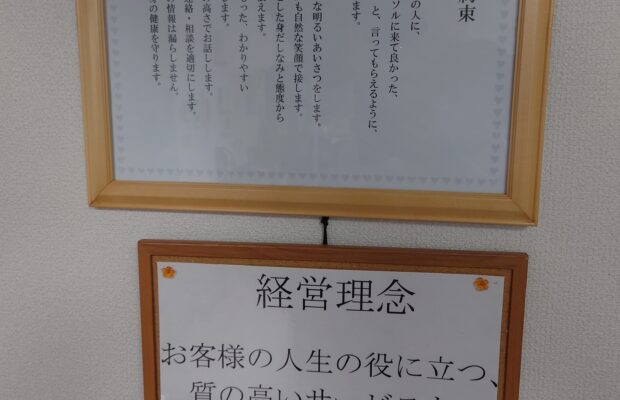 約束
の人に、
ソルに来て良かった、
と、言ってもらえるように、
ます。
な明るいあいさつをします。
も自然な笑顔で接します。
とした身だしなみと態度から
えます。
った、わかりやすい
します。
高さでお話しします。
連絡・相談を適切にします。
情報は漏らしません。
の健康を守ります。
経営理念
お客様の人生の役に立つ、
質の高いサービスを